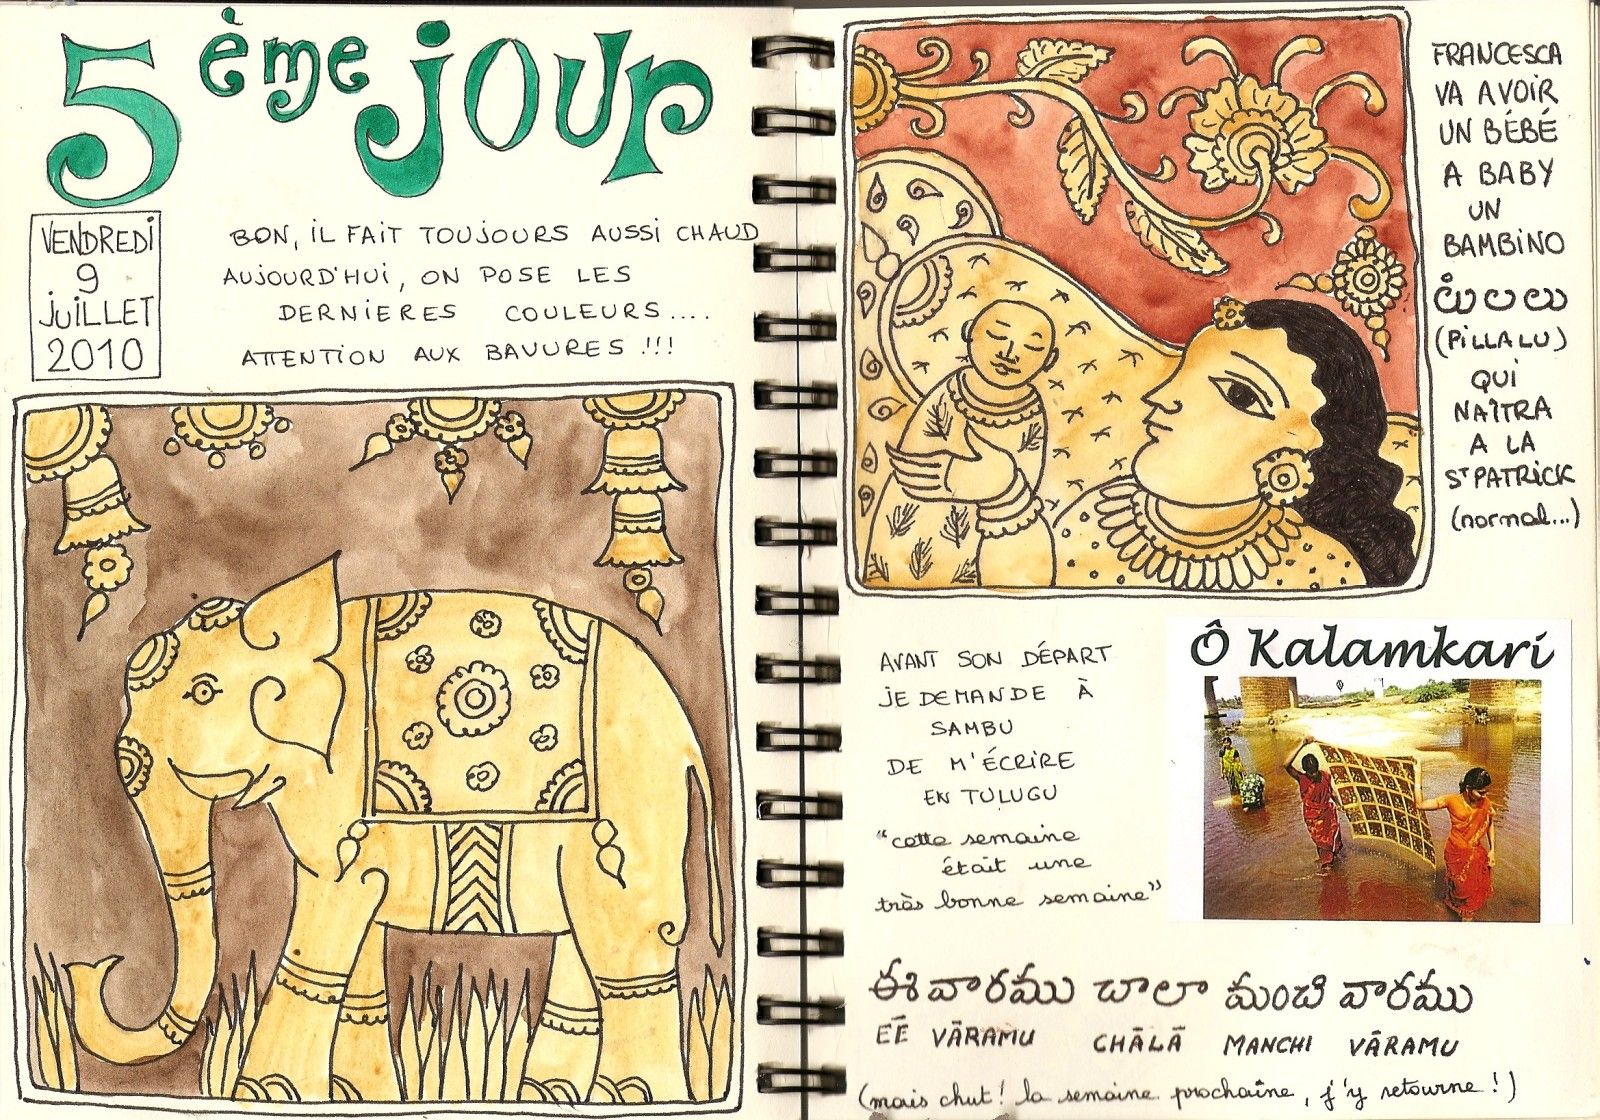 5ème jour
VENDREDI
9
JUILLET
2010
BON, IL FAIT TOUJOURS AUSSI CHAUD
AUJOURD'HUI, ON POSE LES
DERNIERES COULEURS....
ATTENTION AUX BAVURES !!!
FRANCESCA
VA AVOIR
UN BÉBÉ
A BABY
UN
BAMBINO
పిలలు
(PILLALU)
QUI
NAÎTRA
A LA
ST PATRICK
(normal...)
AVANT SON DÉPART
JE DEMANDE À
SAMBU
DE M'ÉCRIRE
EN TULUGU
"cette semaine
était une
très bonne semaine"
Ô Kalamkari
ఈ వారము చాలా మంచి వారము
EÉ VĀRAMU CHĀLĀ MANCHI VĀRAMU
(mais chut! la semaine prochaîne, j'y retourne!)